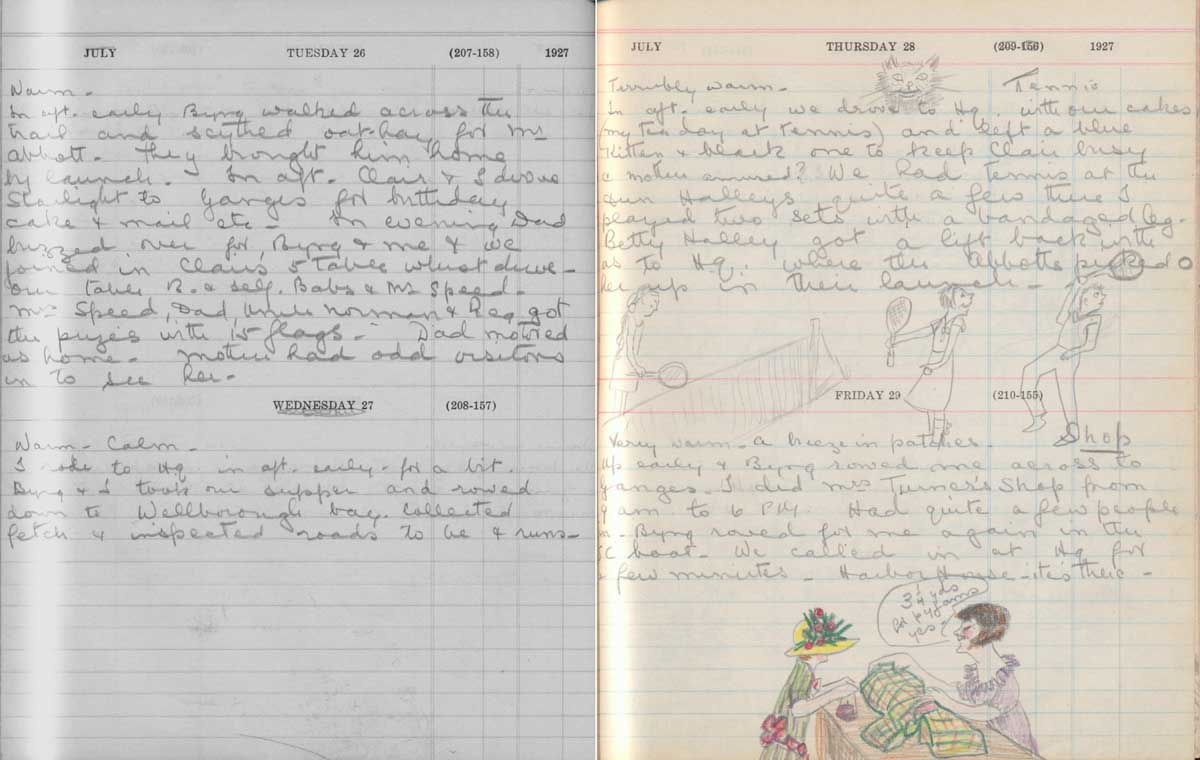 JULY TUESDAY 26 (207-158) 1927
Warm -
In aft. early Byng walked across the
trail and scythed oat hay for Mr
Abbott. They brought him home
by launch. In aft. Clair & I drove
Starlight to Ganges for birthday
cake & mail etc - In evening Dad
buzzed over for Byng & me & we
joined in Clair's 5 table whist drive -
our table B. & self. Babs & Mr Speed -
Mrs Speed, Dad, Uncle Norman & Reg got
the prizes with 15 flags - Dad motored
us home - Mother had odd visitors
in to see her -
WEDNESDAY 27 (208-157)
Warm - Calm -
I rode to Hq. in aft. early for a bit.
Byng & I took our supper and rowed
down to Wellborough bay. collected
& inspected roads to be & runs -
JULY THURSDAY 28 (209-156) 1927
Terribly warm - Tennis
In aft. early we drove to Hq. with our cakes
(my tea day at tennis) and left a blue
kitten & black one to keep Clair busy
& mother amused? We had tennis at the
Halleys quite a few there I
played two sets with a bandaged leg -
Betty Halley got a lift back with
us to Hq. where the Abbotts picked
her up in their launch -
FRIDAY 29 (210-155)
Very warm - a breeze in patches. Shop
Up early & Byng rowed me across to
Ganges. I did Mrs Turner's Shop from
9 am to 6 PM. Had quite a few people
in - Byng rowed for me again in the
boat - We called in at Hq for
a few minutes - Harbor House - it is there -
3¼ yds
for pyjams
yes?